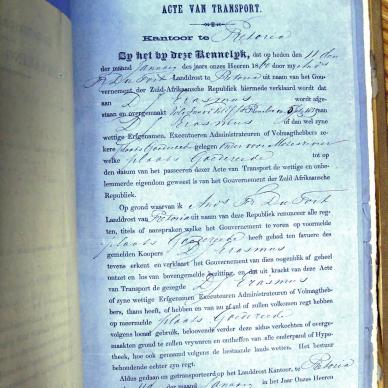 ACTE VAN TRANSPORT.
Kantoor te Pretoria
Zy het by deze Kennelyk, dat op heden den 11 den
der maand January des jaars onzes Heeren 18 by my
Fr Du Toit Landdrost te Pretoria uit naam van het Gouvernement
der Zuid-Afrikaansche Republiek hiermede verklaard wordt dat
aan D Erasmus wordt afgestaan
en overgemaakt
D Erasmus of dan wel zyne
wettige Erfgenamen, Executeuren Administrateuren of Volmagthebbers zekere
plaats Goedereede gelegen
welke plaats Goedereede tot op
den datum van het passeeren dezer Acte van Transport de wettige en onbelemmerde
eigendom geweest is van het Gouvernement der Zuid Afrikaansche
Republiek.
Op grond waarvan ik Fr Du Toit
Landdrost van Pretoria uit naam van deze Republiek renunceer alle regten,
titels of aanspraken welke het Gouvernement te voren op voormelde
plaats Goedereede heeft gehad ten favoure des
gemelden Koopers Erasmus
tevens erkent en verklaart het Gouvernement van dien oogenblik af geheel
ontzet en los van bovengemelde bezitting, en dat uit kracht van deze Acte
van Transport de gezegde D Erasmus
of zyne wettige Erfgenamen, Executeuren Administrateuren of Volmagthebbers,
thans heeft, of hebben en van nu af zal of zullen volkomen regt hebben
op meermelde plaats Goedereede
volgens lands gebruik, beloovende verder deze aldus verkochten of overgemaakten
grond te zullen vrywaren en ontheffen van alle onderpand of Hypotheek,
hoe ook genaamd volgens de bestaande lands wetten. Het bestuur
behoudende echter zyn regt.
Aldus gedaan en getransporteerd op het Landdrost Kantoor, te Pretoria
der maand January in het Jaar Onzes